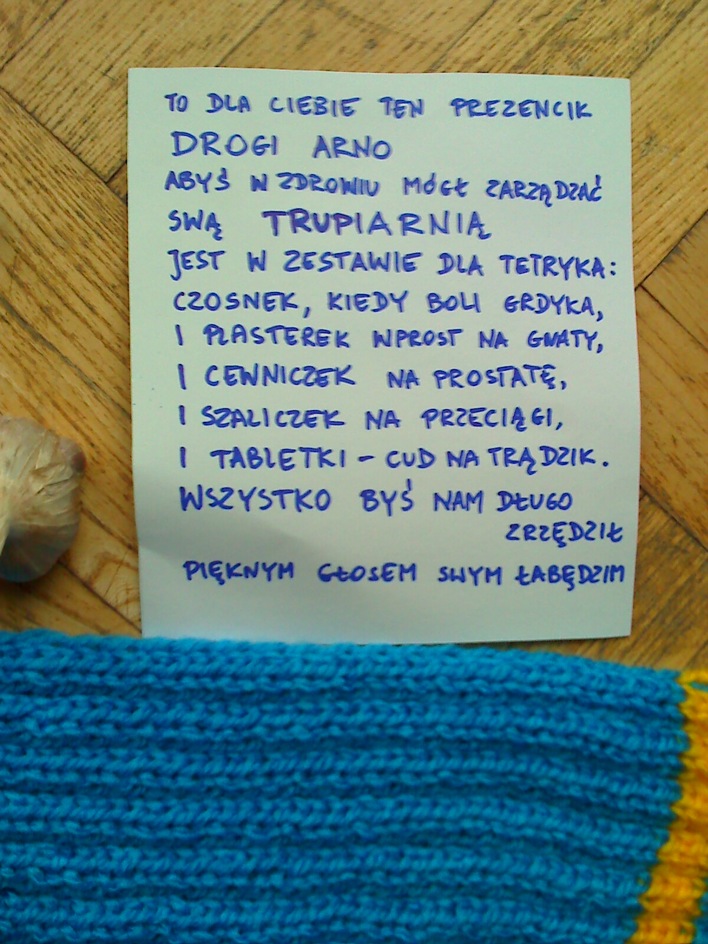 TO DLA CIEBIE TEN PREZENCIK
DROGI ARNO
ABYŚ W ZDROWIU MÓGŁ ZARZĄDZAĆ
SWĄ TRUPIARNIĄ
JEST W ZESTAWIE DLA TETRYKA:
CZOSNEK, KIEDY BOLI GRDYKA,
I PLASTEREK WPROST NA GNATY,
I CEWNICZEK NA PROSTATĘ,
I SZALICZEK NA PRZECIĄGI,
I TABLETKI - CUD NA TRĄDZIK.
WSZYSTKO BYŚ NAM DŁUGO
ZRZĘDZIŁ
PIĘKNYM GŁOSEM SWYM ŁABĘDZIM